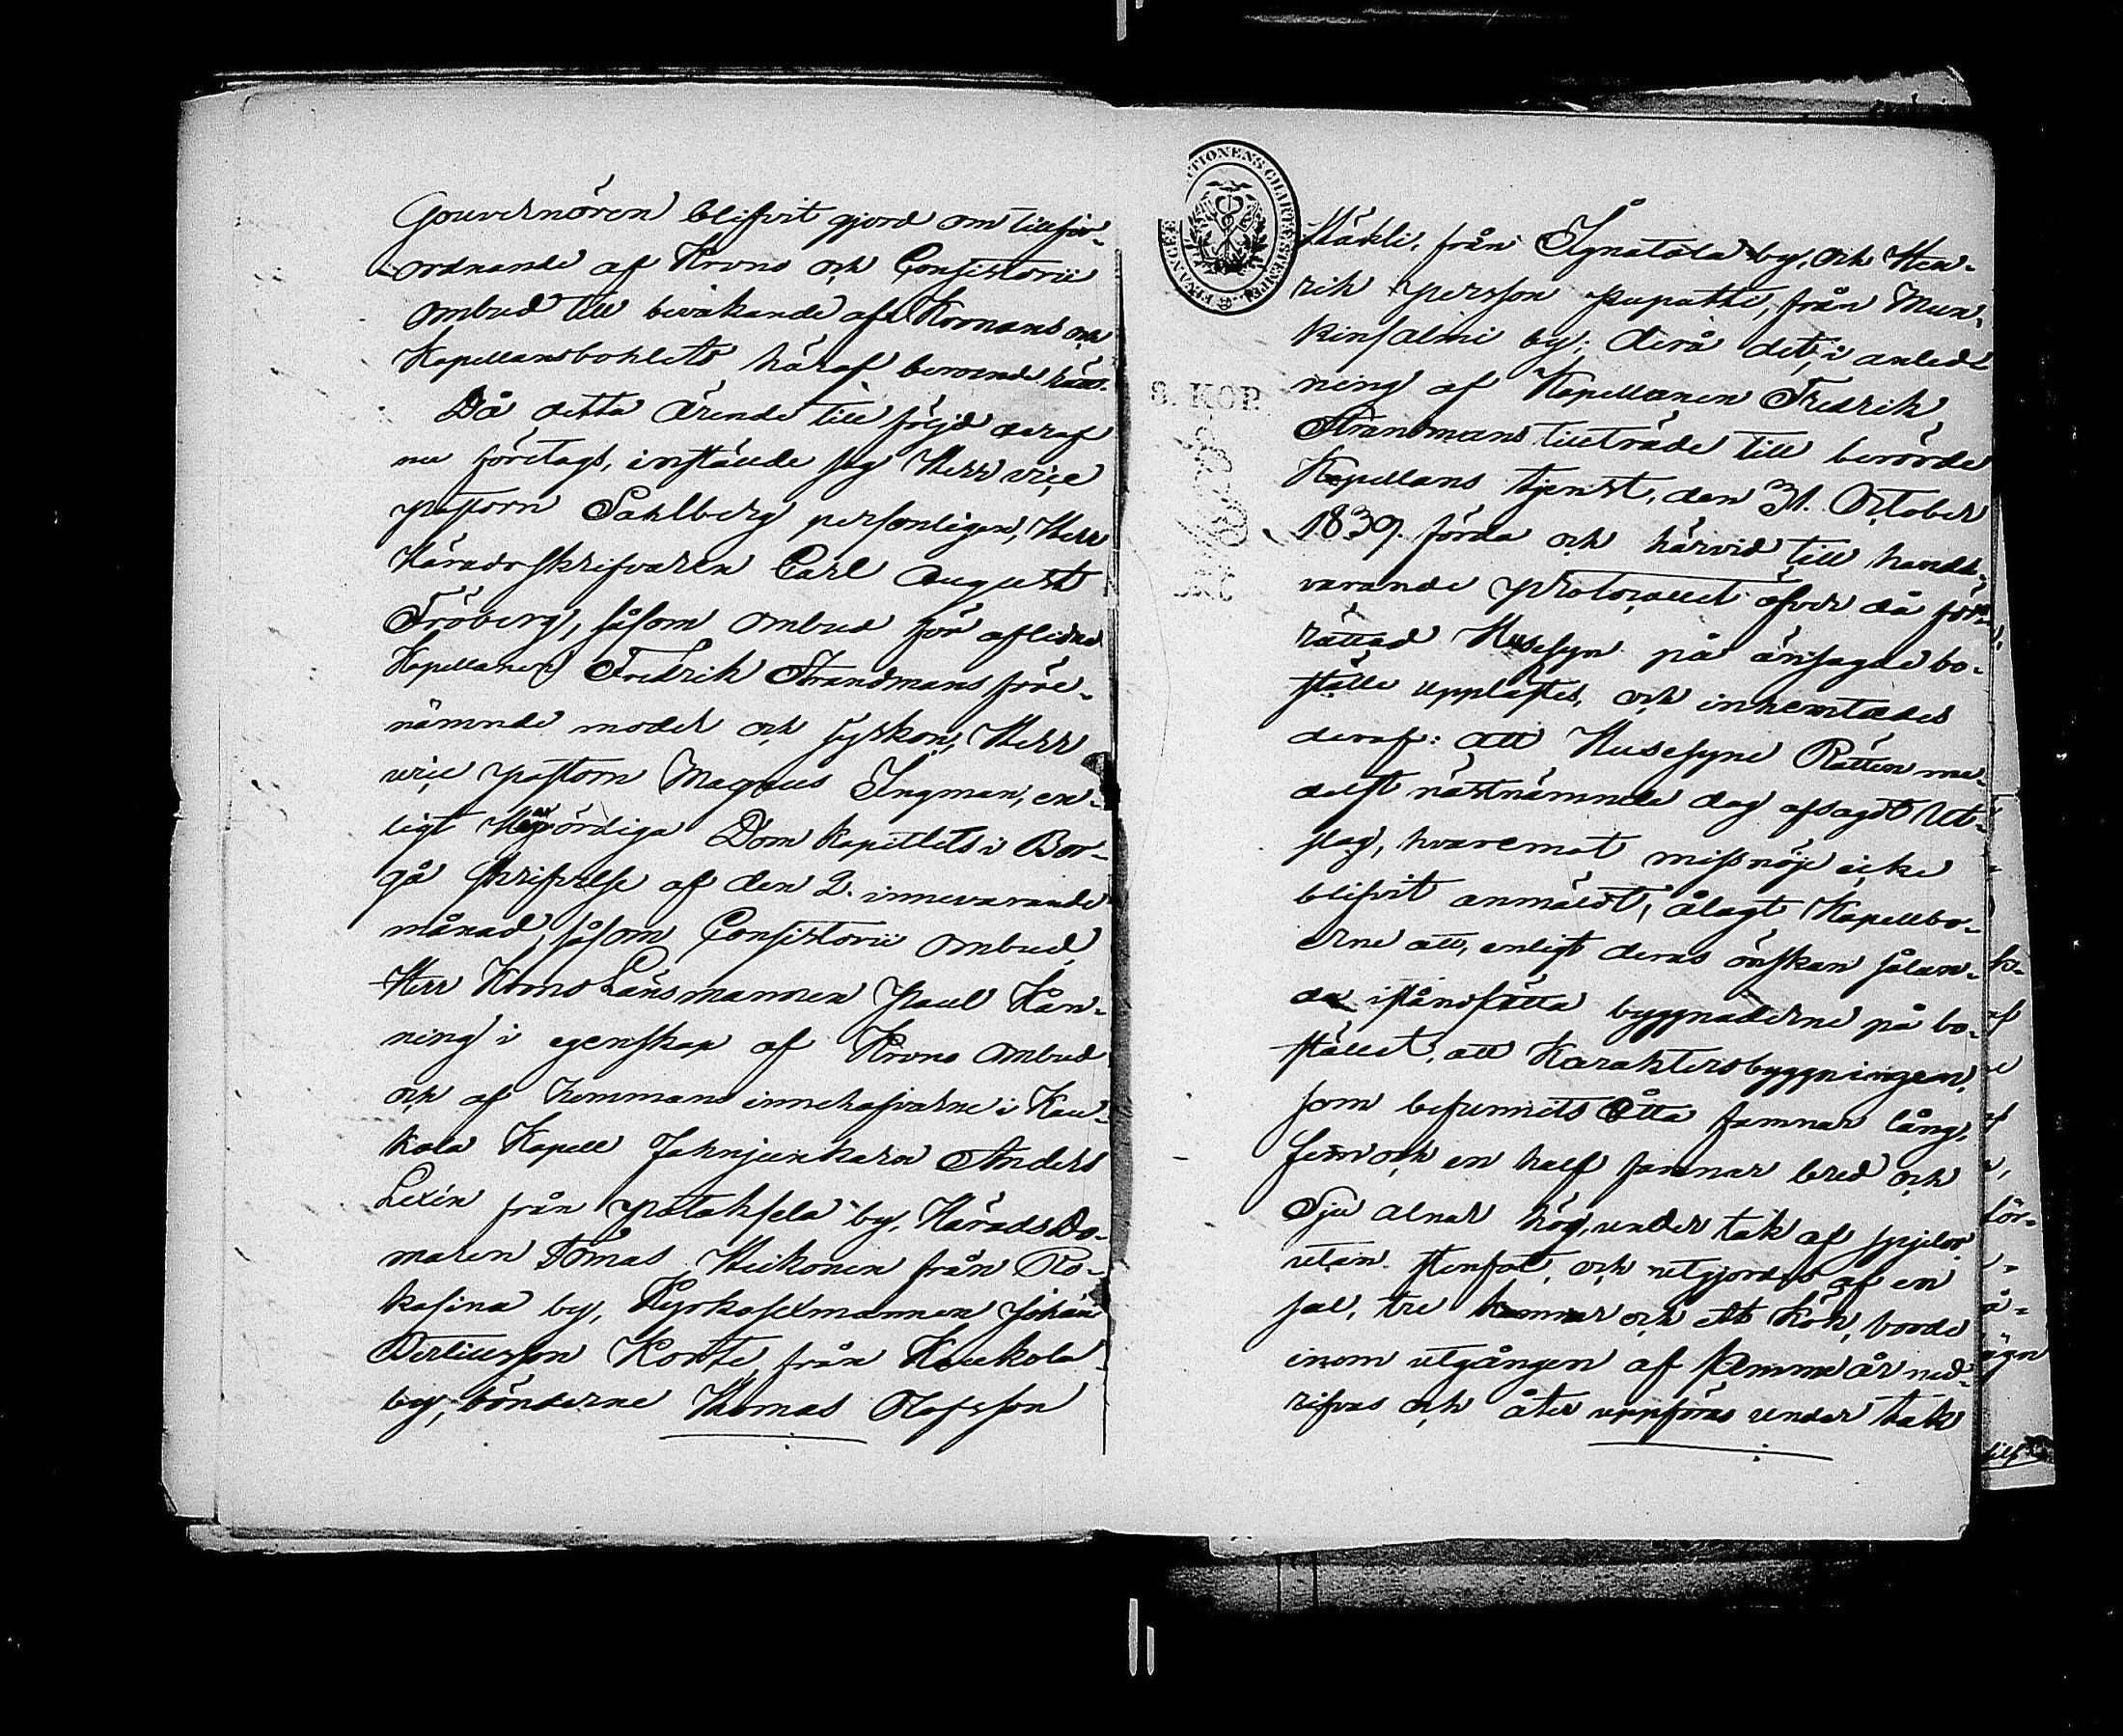 Gouvernören blifvit gjord om tillför-
ordnande af Krono och Consistorii
ombud till bevakande af Kronans och
Kapellansbohlets häraf beroende rätt.
Då detta ärende till följd deraf
nu företags, inställde sig Herr vice
pastorn Sahlberg personligen, Herr
Häradsskrifvaren Carl August
Fröberg, såsom ombud för aflidne
Kapellanen Fredrik Strandmans före-
nämnde moder och syskon, Herr
vice pastorn Magnus Ingman, en-
ligt Högvördiga Dom Kapitlets i Bor-
gå skrifvelse af den 2. innevarande
månad, såsom Consistorii ombud,
Herr Krono Länsmannen Paul Hån-
ning i egenskap af Krono ombud
och af hemmans innehafvarne i Kau-
kola Kapell Fahnjunkaren Anders
Lexén från Potaksela by, HäradsDo-
maren Tomas Heikonen från Ro-
kosina by, Kyrkosexmannen Johan
Bertilsson Korte från Kaukola
by, bönderne Thomas Olofsson
FINANCE TIONENS CHARTÆ STEMPEL
8. KOP.
Mäkli, från Ignatala by, och Hen-
rik Persson Pupatti, från Mun-
kinsalmi by; derå det, i anled-
ning af Kapellanen Fredrik
Strandmans tillträde till berörde
Kapellans tjenst, den 31. October
1839. förda och härvid till handa-
varande protocollet öfver då för-
rättad Husesyn på ansagde bo-
ställe upplästes, och inhemtades
deraf: att Husesyns Rätten me-
delst nästnämnde dag afsagdt Ut-
slag, hvaremot missnöje icke
blifvit anmäldt, ålagt Kapellbo-
erne att, enligt deras önskan sålun-
da iståndsätta byggnaderne på bo-
stället, att Karaktersbyggningen,
som befunnits Åtta famnar lång,
fem och en half famnar bred och
Sju alnar hög, under tak af spjelor
utan stenfot, och utgjordes af en
sal, tre kamrar och ett kök, borde
inom utgången af femme år ned-
rifvas och åter uppföras under tak